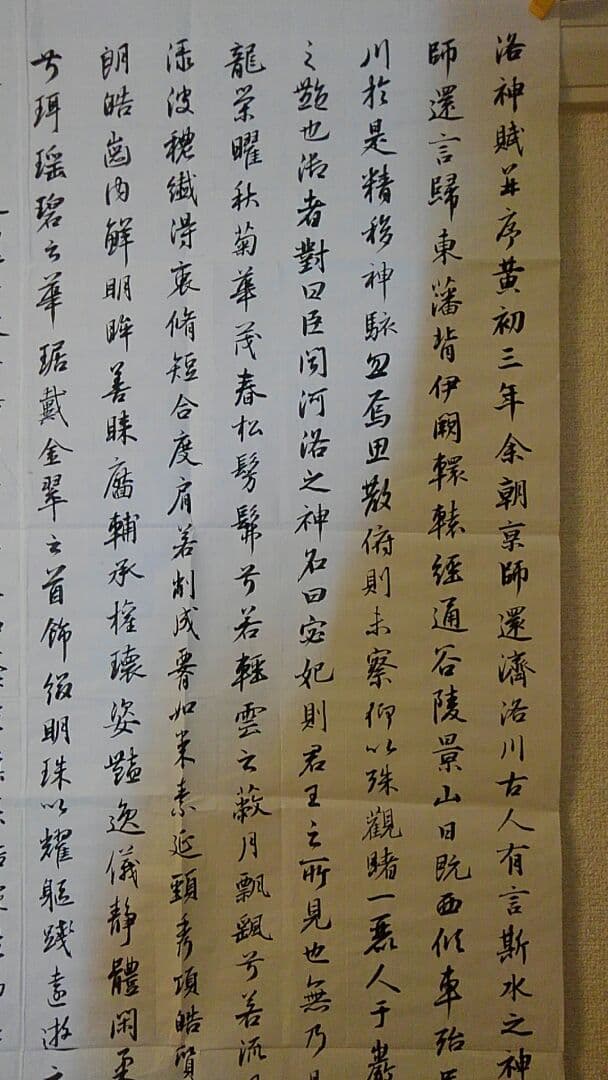 洛神賦并序黃初三年余朝京師還濟洛川古人有言斯水之神
師還言歸東藩背伊闕轘轅經通谷陵景山日既西傾車殆
川於是精移神駭忽焉思散俯則未察仰以殊觀睹一麗人于巖
之艷也御者對曰臣聞河洛之神名曰宓妃則君王之所見也無乃
龍榮曜秋菊華茂春松髣髴兮若輕雲之蔽月飄颻兮若流
淥波穠纖得衷脩短合度肩若削成署如束素延頸秀項皓質
朗皓齒內鮮明眸善睞靨輔承權瓌姿豔逸儀靜體閑柔
兮珥瑶碧之華琚戴金翠之首飾綴明珠以耀軀踐遠遊之